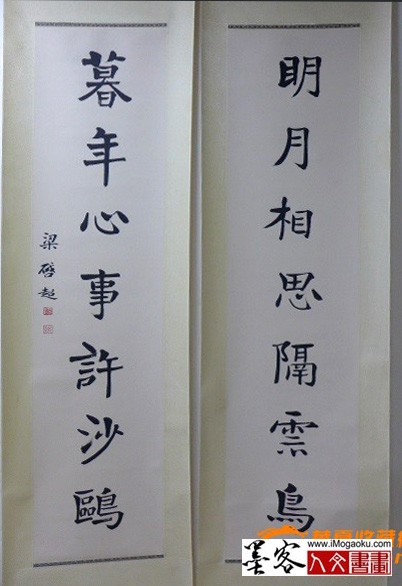 明月相思隔雲鳥
暮年心事許沙鷗
梁啓超
墨客
www.iMogaoku.com
人文書畫